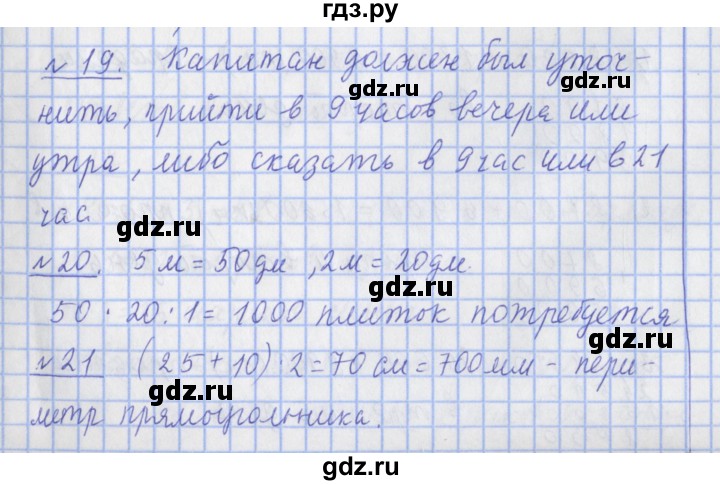 гдз.ру
№19. Капитан должен был уточ-
нить, прийти в 9 часов вечера или
gdz.ru
gdz.ru
утра, либо сказать в 9 час или в 21
час.
gdz.ru
gdz.ru
№20. 5 м = 50 дм, 2 м = 20 дм.
gdz.ru
gdz.ru
50 · 20 : 1 = 1000 плиток потребуется
№21 (25 + 10) · 2 = 70 см = 700 мм - пери-
gdz.ru
gdz.ru
метр прямоугольника.
gdz.ru